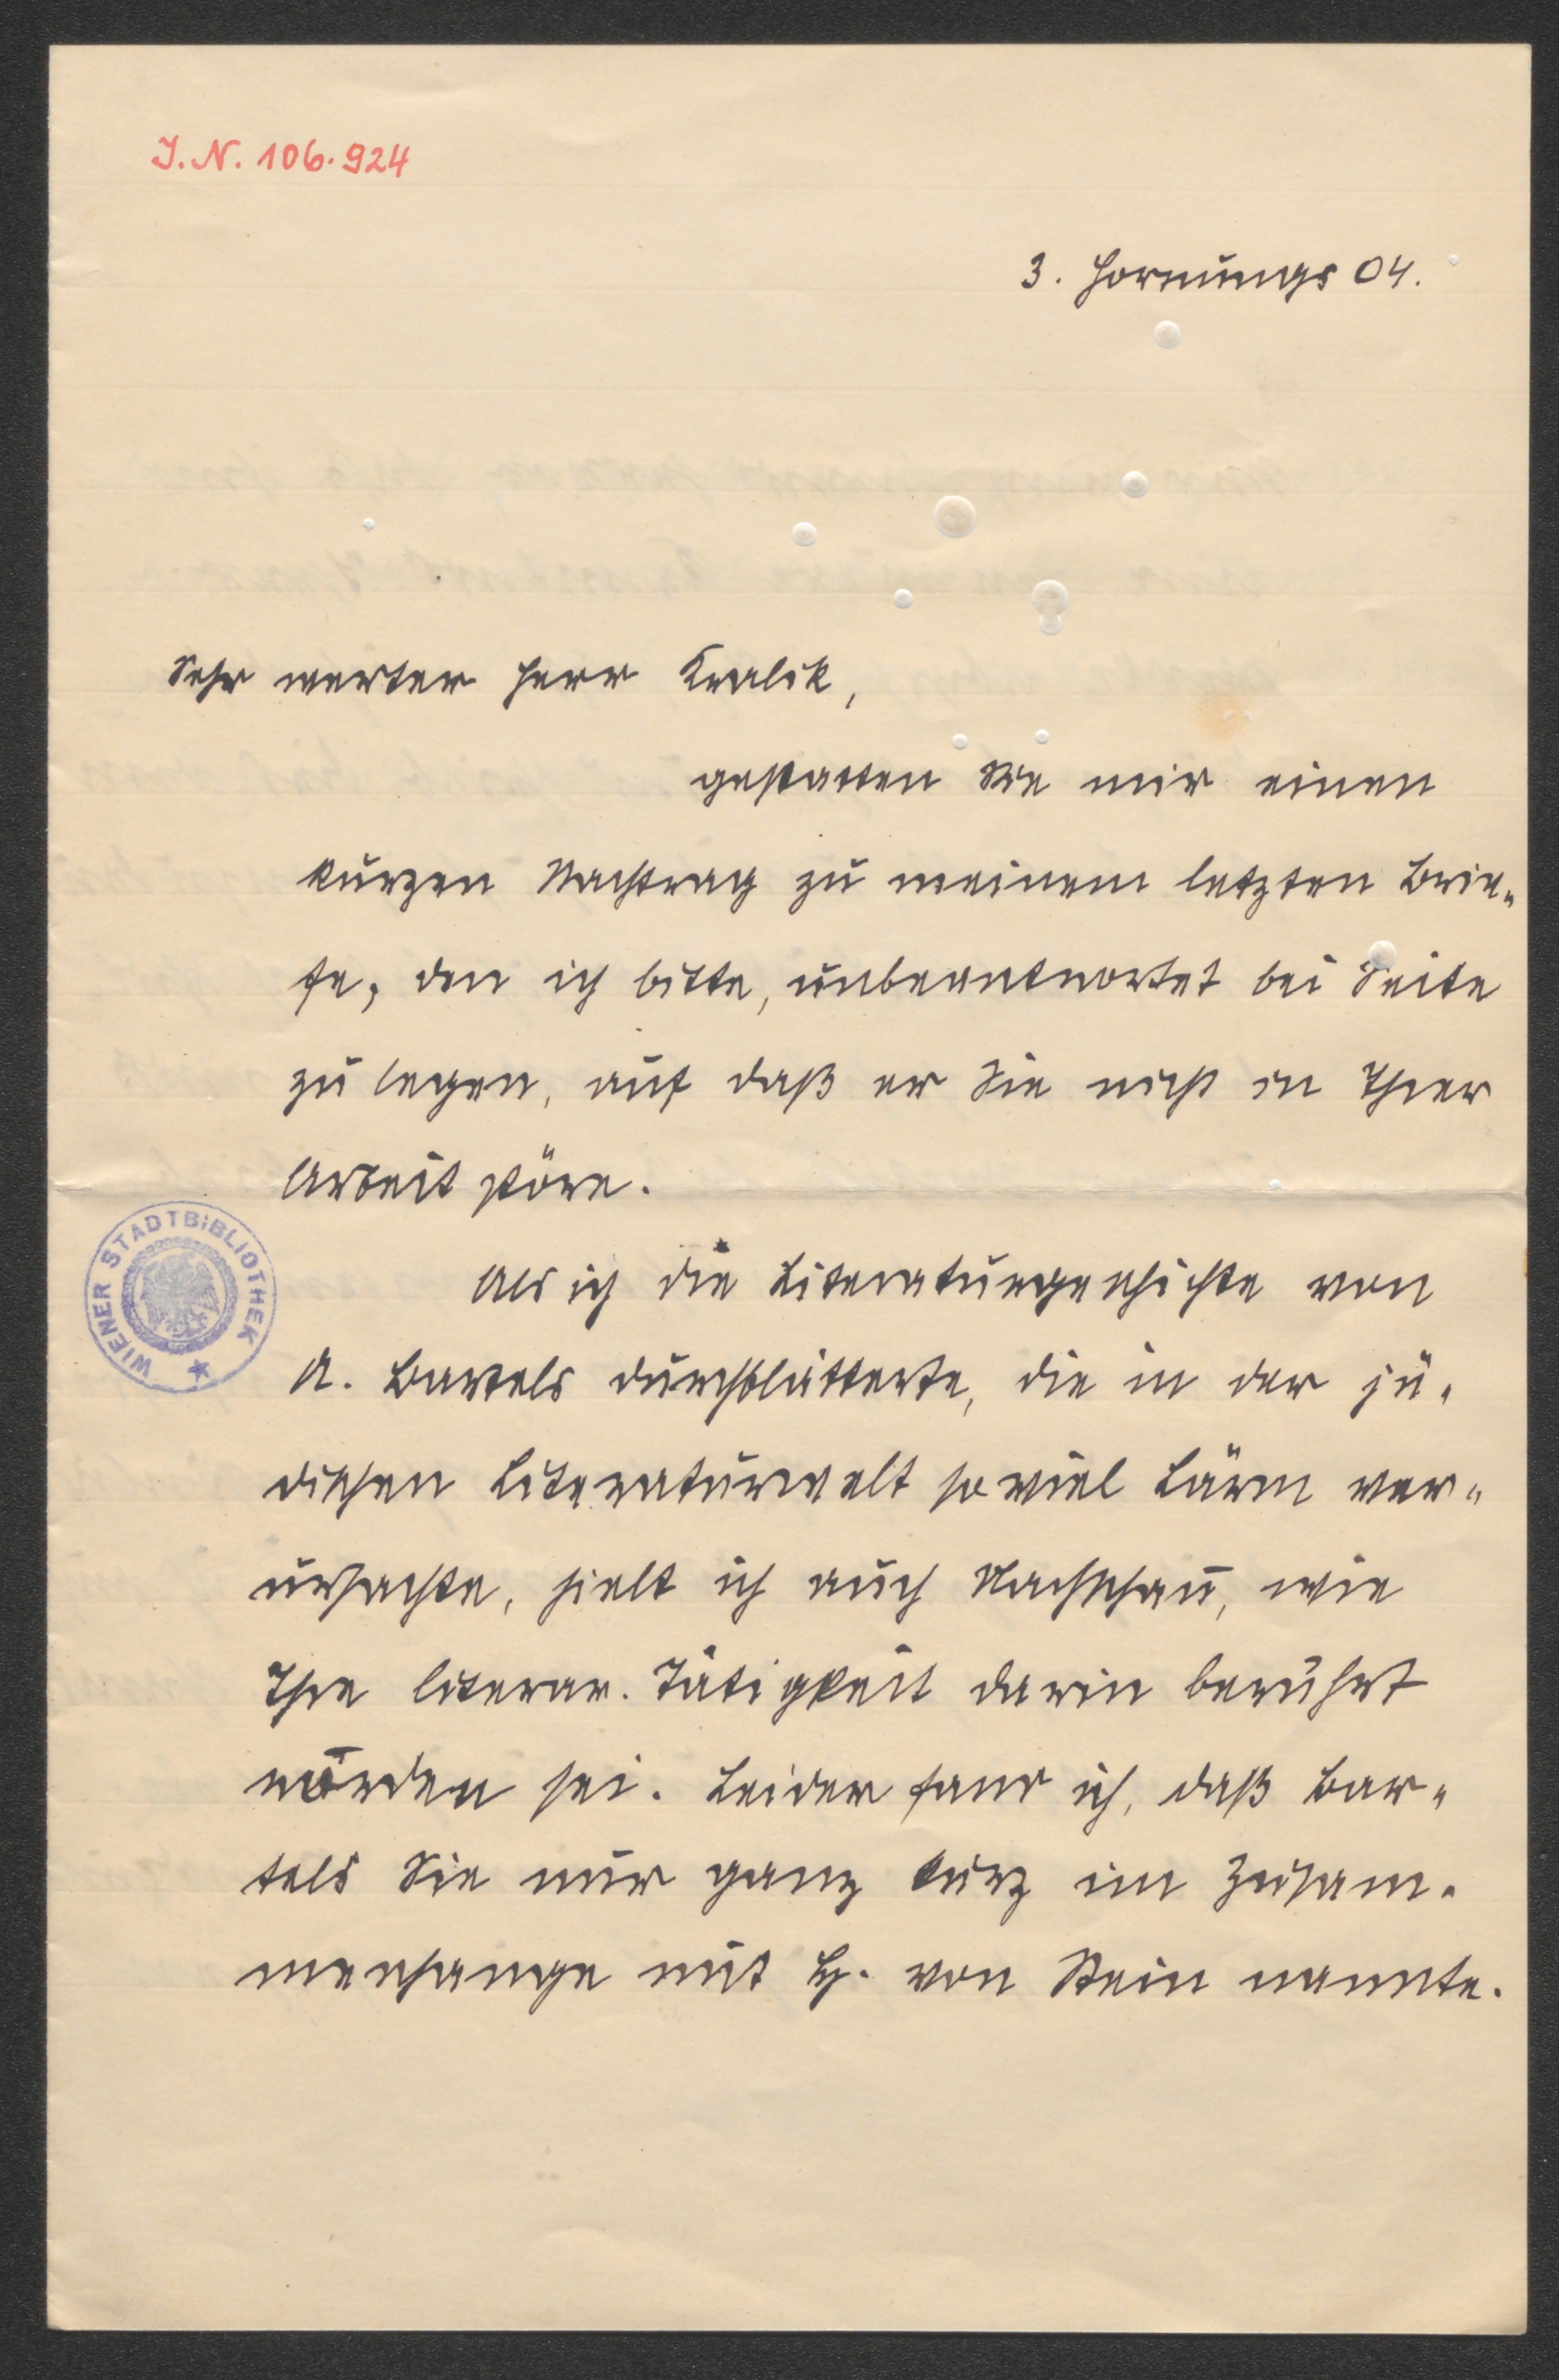 J. N. 106.924
3. Hornungs 04.
Sehr werter Herr Kralik,
gestatten Sie mir einen
kurzen Nachtrag zu meinem letzten Brie-
fe, den ich bitte, unbeantwortet bei Seite
zu legen, auf daß er Sie nicht in Ihrer
Arbeit störe.
Als ich die Literaturgeschichte von
A. Bartels durchblätterte, die in der jü-
dischen Literaturwelt so viel Lärm ver-
ursachte, hielt ich auch Nachschau, wie
Ihre literar. Tätigkeit darin berührt
worden sei. Leider fand ich, daß Bar-
tels Sie nur ganz kurz im Zusam-
menhange mit H. von Stein nannte.
WIENER STADTBIBLIOTHEK